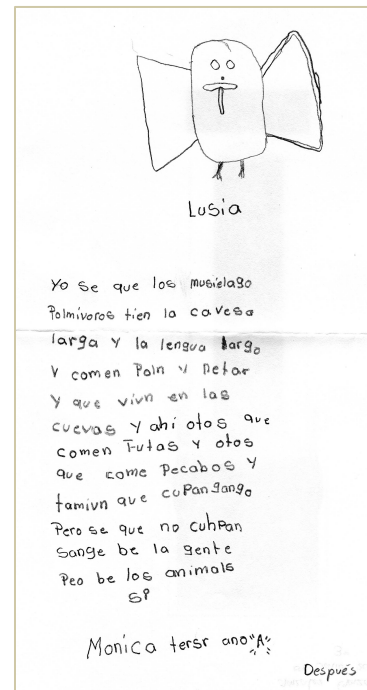 Lusia
Yo se que los musielago
Polmívoros tien la cavesa
larga y la lengua largo
y comen Poln y Netar
Y que vivn en las
cuevas y ahí otos que
comen Futas y otos
que come Pecabos y
tamivn que cuPangango
Pero se que no cuhPan
Sange be la gente
Peo be los animals
sí
Monica tersr ano "A"
Después